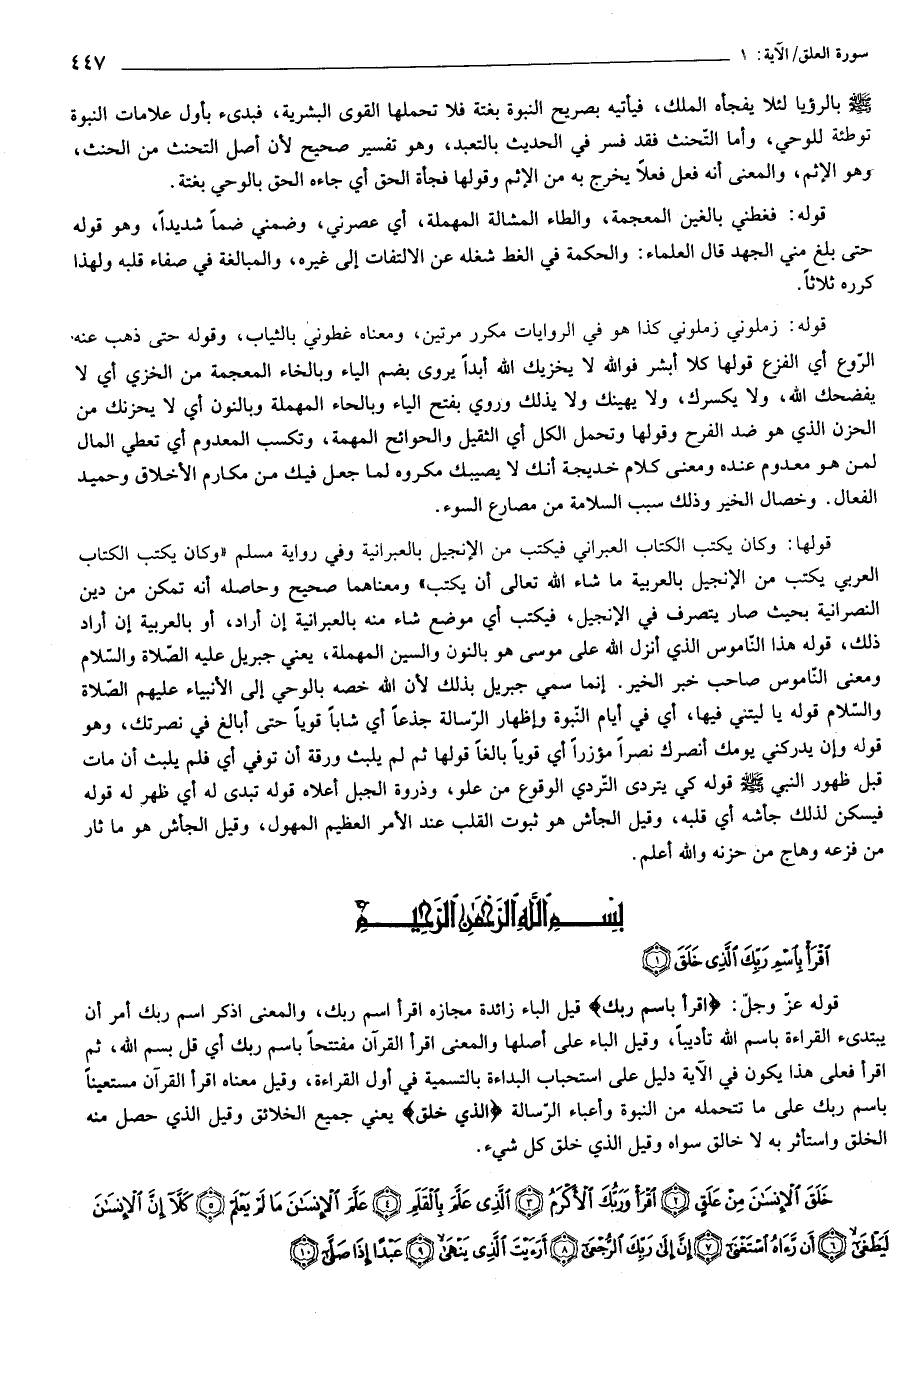 سورة العلق/ الآية: ١ ٤٤٧
ﷺ بالرؤيا لئلا يفجأه الملك، فيأتيه بصريح النبوة بغتة فلا تحملها القوى البشرية، فبدىء بأول علامات النبوة
توطئة للوحي، وأما التّحنث فقد فسر في الحديث بالتعبد، وهو تفسير صحيح لأن أصل التحنث من الحنث،
وهو الإثم، والمعنى أنه فعل فعلاً يخرج به من الإثم وقولها فجأة الحق أي جاءه الحق بالوحي بغتة.
قوله: فغطني بالغين المعجمة، والطاء المشالة المهملة، أي عصرني، وضمني ضماً شديداً، وهو قوله
حتى بلغ مني الجهد قال العلماء: والحكمة في الغط شغله عن الالتفات إلى غيره، والمبالغة في صفاء قلبه ولهذا
كرره ثلاثاً.
قوله: زملوني زملوني كذا هو في الروايات مكرر مرتين، ومعناه غطوني بالثياب، وقوله حتى ذهب عنه
الرّوع أي الفزع قولها كلا أبشر فوالله لا يخزيك الله أبداً يروى بضم الياء وبالخاء المعجمة من الخزي أي لا
يفضحك الله، ولا يكسرك، ولا يهينك ولا يذلك وروي بفتح الياء وبالحاء المهملة وبالنون أي لا يحزنك من
الحزن الذي هو ضد الفرح وقولها وتحمل الكل أي الثقيل والحوائج المهمة، وتكسب المعدوم أي تعطي المال
لمن هو معدوم عنده ومعنى كلام خديجة أنك لا يصيبك مكروه لما جعل فيك من مكارم الأخلاق وحميد
الفعال. وخصال الخير وذلك سبب السلامة من مصارع السوء.
قولها: وكان يكتب الكتاب العبراني فيكتب من الإنجيل بالعبرانية وفي رواية مسلم «وكان يكتب الكتاب
العربي يكتب من الإنجيل بالعربية ما شاء الله تعالى أن يكتب» ومعناهما صحيح وحاصله أنه تمكن من دين
النصرانية بحيث صار يتصرف في الإنجيل، فيكتب أي موضع شاء منه بالعبرانية إن أراد، أو بالعربية إن أراد
ذلك، قوله هذا النّاموس الذي أنزل الله على موسى هو بالنون والسين المهملة، يعني جبريل عليه الصّلاة والسّلام
ومعنى النّاموس صاحب خبر الخير. إنما سمي جبريل بذلك لأن الله خصه بالوحي إلى الأنبياء عليهم الصّلاة
والسّلام قوله يا ليتني فيها، أي في أيام النبوة وإظهار الرّسالة جذعاً أي شاباً قوياً حتى أبالغ في نصرتك، وهو
قوله وإن يدركني يومك أنصرك نصراً مؤزراً أي قوياً بالغاً قولها ثم لم يلبث ورقة أن توفي أي فلم يلبث أن مات
قبل ظهور النبي ﷺ قوله كي يتردى التّردي الوقوع من علو، وذروة الجبل أعلاه قوله تبدى له أي ظهر له قوله
فيسكن لذلك جأشه أي قلبه، وقيل الجأش هو ثبوت القلب عند الأمر العظيم المهول، وقيل الجأش هو ما ثار
من فزعه وهاج من حزنه والله أعلم.
بِسْمِ ٱللَّهِ ٱلرَّحْمَٰنِ ٱلرَّحِيمِ
ٱقْرَأْ بِٱسْمِ رَبِّكَ ٱلَّذِى خَلَقَ ١
قوله عزّ وجلّ: ﴿اقرأ باسم ربك﴾ قيل الباء زائدة مجازه اقرأ اسم ربك، والمعنى اذكر اسم ربك أمر أن
يبتدىء القراءة باسم الله تأديباً، وقيل الباء على أصلها والمعنى اقرأ القرآن مفتتحاً باسم ربك أي قل بسم الله، ثم
اقرأ فعلى هذا يكون في الآية دليل على استحباب البداءة بالتسمية في أول القراءة، وقيل معناه اقرأ القرآن مستعيناً
باسم ربك على ما تتحمله من النبوة وأعباء الرّسالة ﴿الذي خلق﴾ يعني جميع الخلائق وقيل الذي حصل منه
الخلق واستأثر به لا خالق سواه وقيل الذي خلق كل شيء.
خَلَقَ ٱلْإِنسَٰنَ مِنْ عَلَقٍ ٢ ٱقْرَأْ وَرَبُّكَ ٱلْأَكْرَمُ ٣ ٱلَّذِى عَلَّمَ بِٱلْقَلَمِ ٤ عَلَّمَ ٱلْإِنسَٰنَ مَا لَمْ يَعْلَمْ ٥ كَلَّآ إِنَّ ٱلْإِنسَٰنَ
لَيَطْغَىٰٓ ٦ أَن رَّءَاهُ ٱسْتَغْنَىٰٓ ٧ إِنَّ إِلَىٰ رَبِّكَ ٱلرُّجْعَىٰٓ ٨ أَرَءَيْتَ ٱلَّذِى يَنْهَىٰ ٩ عَبْدًا إِذَا صَلَّىٰٓ ١٠